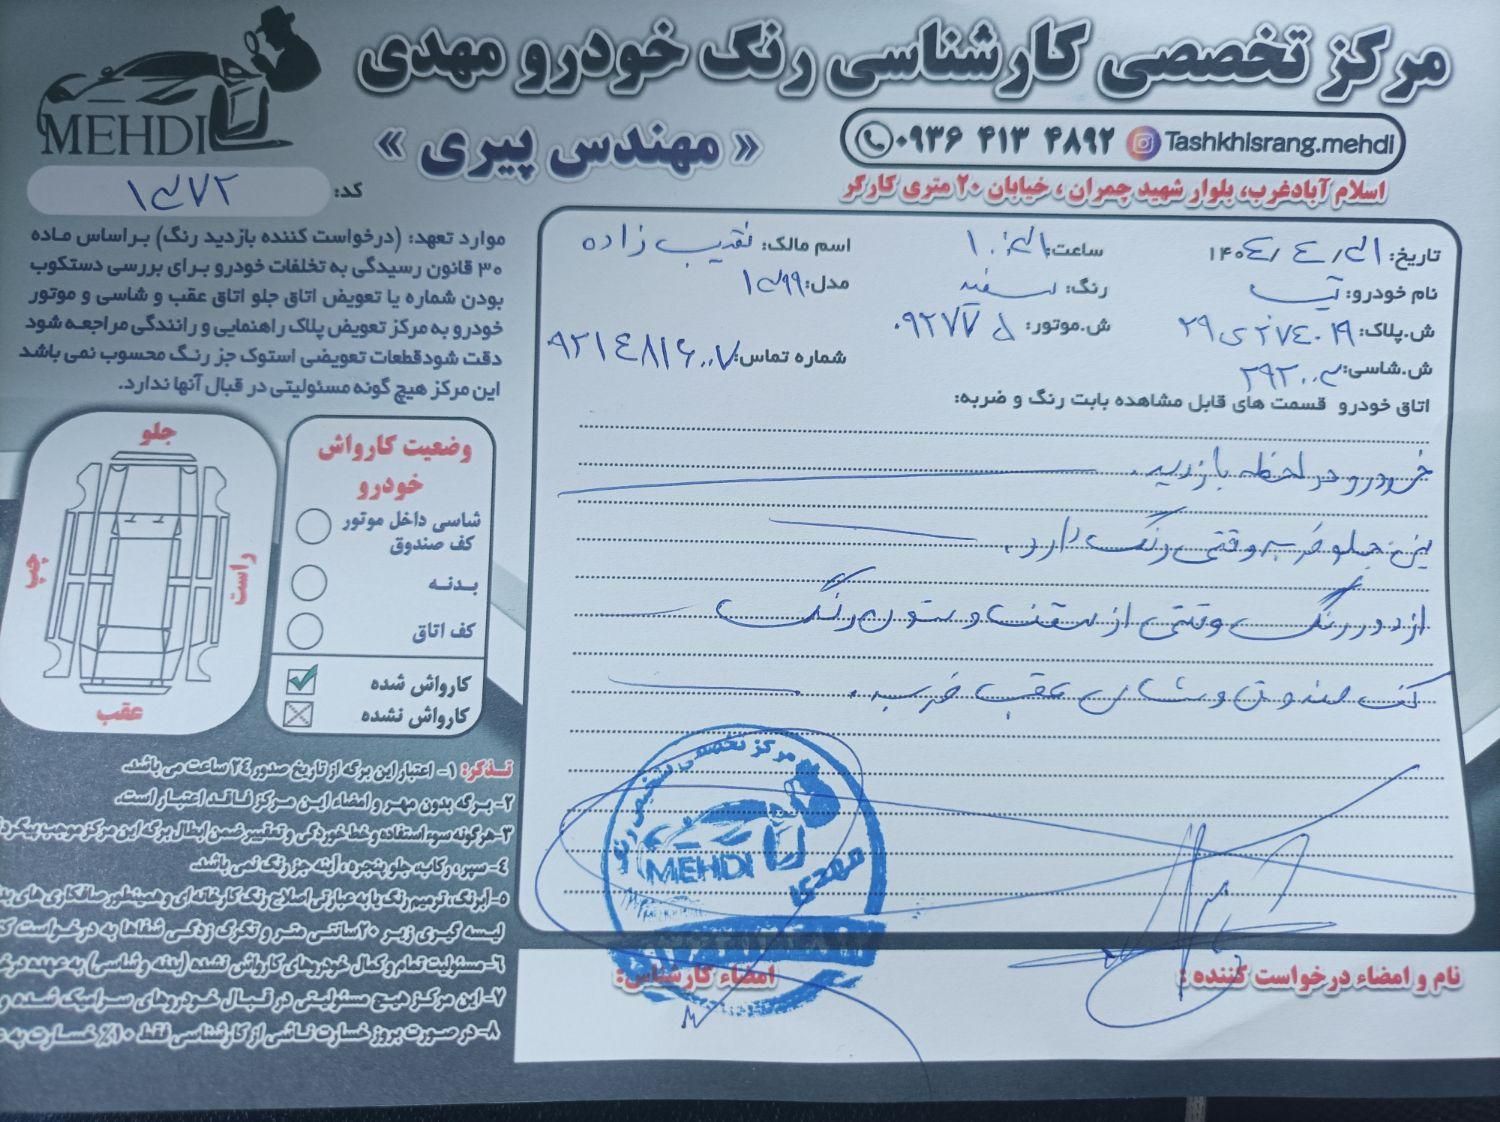 مرکز تخصصی کارشناسی رنگ خودرو مهدی
MEHDI
« مهندس پیری »
۰۹۳۶ ۴۱۳ ۴۸۹۲ Tashkhisrang.mehdi
اسلام آبادغرب، بلوار شهید چمران ، خیابان ۲۰ متری کارگر
کد:
موارد تعهد: (درخواست کننده بازدید رنگ) براساس ماده
۳۰ قانون رسیدگی به تخلفات خودرو برای بررسی دستکوب
بودن شماره یا تعویض اتاق جلو اتاق عقب و شاسی و موتور
خودرو به مرکز تعویض پلاک راهنمایی و رانندگی مراجعه شود
دقت شود قطعات تعویضی استوک جز رنگ محسوب نمی باشد
این مرکز هیچ گونه مسئولیتی در قبال آنها ندارد.
تاریخ: ساعت: اسم مالک: نقیب زاده
نام خودرو: تیبا رنگ: سفید مدل:
ش.پلاک: ش.موتور:
ش.شاسی: شماره تماس:
اتاق خودرو قسمت های قابل مشاهده بابت رنگ و ضربه:
خودرو در لحظه بازدید.
جلو ضربه وقتی رنگ دارد.
از دور رنگ وقتی از سقف و ستون رنگ
کف صندوق و شاسی عقب ضربه.
جلو
چپ
راست
عقب
وضعیت کارواش
خودرو
شاسی داخل موتور
کف صندوق
بدنه
کف اتاق
کارواش شده
کارواش نشده
تذکر: ۱- اعتبار این برگه از تاریخ صدور ۲۴ ساعت می باشد.
۲- برگه بدون مهر و امضاء این مرکز فاقد اعتبار است.
۳- هرگونه سوء استفاده و خط خوردگی و تغییر ضمن ابطال برگه این مرکز موجب پیگرد
۴- سپر ، رکاب، جلو پنجره ، آینه جز رنگ نمی باشد.
۵- آبرنگ، ترمیم رنگ یا به عبارتی اصلاح رنگ کارخانه ای و همینطور صافکاری های
لیسه گیری زیر ۲۰ سانتی متر و تگرگ زدگی شفاها به درخواست
۶- مسئولیت تمام و کمال خودروهای کارواش نشده (بدنه و شاسی) به عهده
۷- این مرکز هیچ مسئولیتی در قبال خودروهای سرامیک شده و
۸- در صورت بروز خسارت ناشی از کارشناسی فقط ۱۰٪ خسارت به
مرکز تخصصی تشخیص رنگ
MEHDI
مهدی
امضاء کارشناس:
نام و امضاء درخواست کننده :